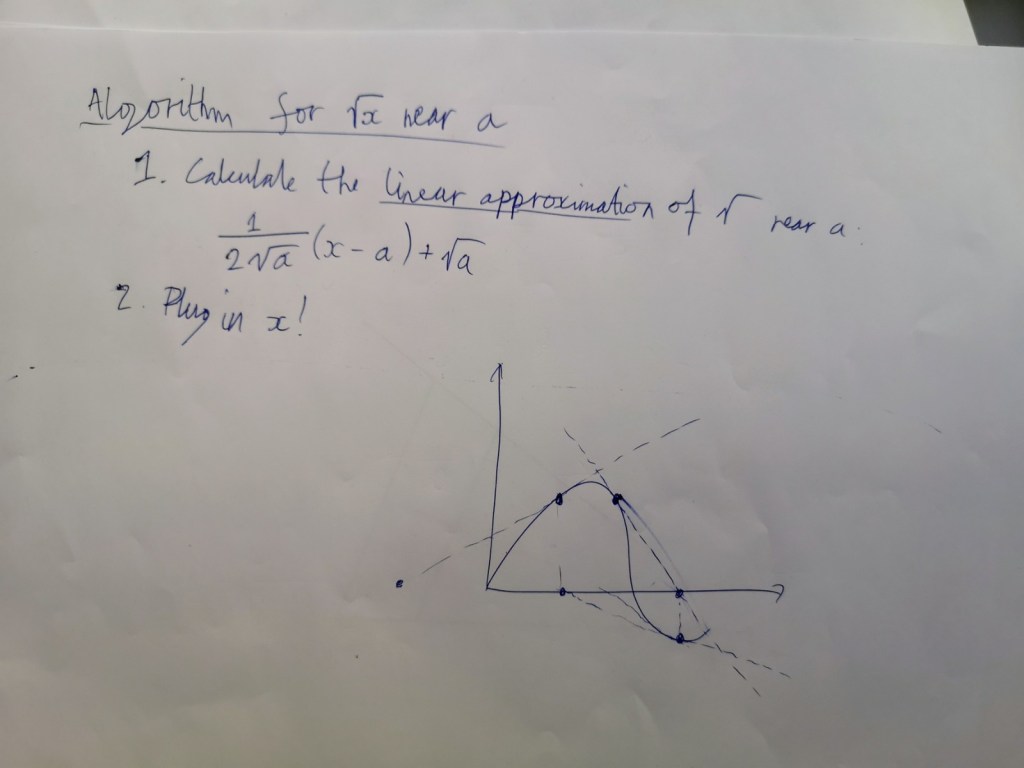 Algorithm for √x near a
1. Calculate the linear approximation of √ near a:
1/(2√a) (x - a) + √a
2. Plug in x!